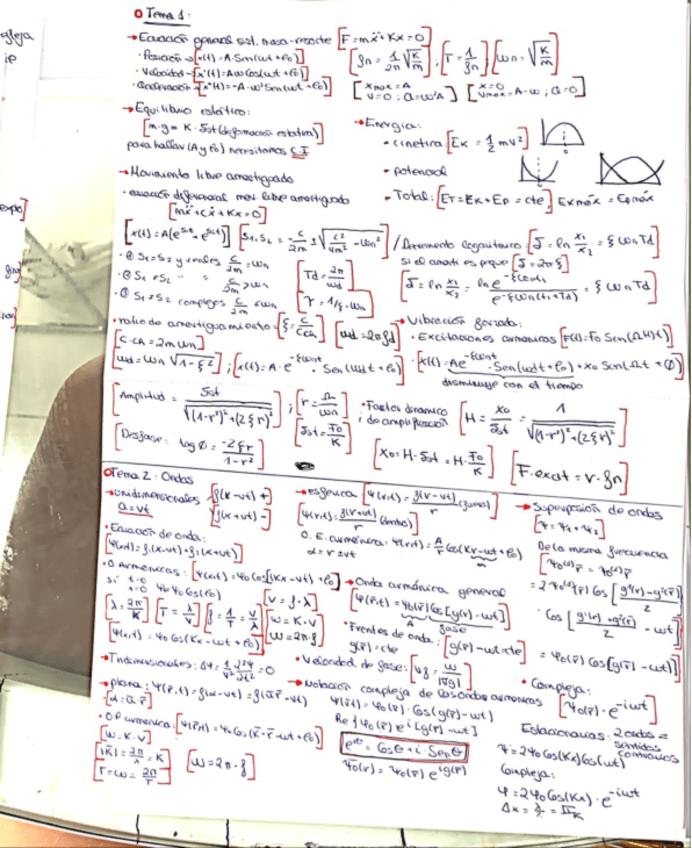 Tema 1:
→Ecuación general sist. masa-resorte [F=mẍ+Kx=0]
· Posición→[x(t)=A·Sen(ωt+φ0)]
· Velocidad→[x'(t)=Aω Cos(ωt+φ0)]
· Aceleración→[x''(t)=-A·ω² Sen(ωt+φ0)]
[fn = 1/2π √(K/m)] ; [T = 1/fn] ; [ωn = √(K/m)]
[xmax=A v=0 ; a=ω²A] [x=0 vmax=A·ω ; a=0]
→Equilibrio estático:
[m·g = K·δst (deformación estática)]
para hallar (A y φ0) necesitamos C.I
→Energía:
· cinética [Ek = 1/2 mv²]
· potencial
· Total: [ET=Ek+Ep=cte] Ekmáx = Epmáx
→Movimiento libre amortiguado
· ecuación diferencial mov. libre amortiguado
[mẍ+cẋ+Kx=0]
[x(t)=A(e^s1t + e^s2t)] [S1,S2 = -c/2m ± √(c²/4m² - ωn²)]
/Decremento logarítmico: [δ = ln x1/x2 = ξ ωn Td]
si el amorti es pequeño [δ=2πξ]
[δ = ln x1/x2 = ln e^-ξωnt1 / e^-ξωn(t1+Td) = ξ ωn Td]
S1=S2 y reales c/2m = ωn
S1≠S2 " " c/2m > ωn
S1≠S2 complejos c/2m < ωn
[Td = 2π/ωd]
[τ = 1/ξ·ωn]
· ratio de amortiguamiento=[ξ = c/ccr] [ωd = 2πfd]
[c.cr = 2mωn]
[ωd=ωn √(1-ξ²)] ; [x(t)=A·e^-ξωnt · Sen(ωdt+φ0)]
→Vibración forzada:
· Excitaciones armónicas [F(t)=F0 Sen(Ωt)]
· [x(t)=Ae^-ξωnt · Sen(ωdt+φ0)+x0 Sen(Ωt+Ø)]
disminuye con el tiempo
[Amplitud = δst / √((1-r²)²+(2ξr)²)] ; [r = Ω/ωn]
[δst = F0/K]
[Desfase: tag Ø = -2ξr / 1-r²]
· Factor dinamico de amplificación [H = x0/δst = 1/√((1-r²)²+(2ξr)²)]
[x0=H·δst=H·F0/K] [F.excit = r·fn]
Tema 2: Ondas
→unidimensionales [f(x-vt) +
f(x+vt) -]
a=vt
· Ecuación de onda:
[ψ(x,t)=f1(x-vt)+f2(x+vt)]
· O Armónicas: [ψ(x,t)=ψ0 Cos[k(x-vt)+φ0]
si t=0 x=0
[λ = 2π/K] [T = λ/v] [f = 1/T = v/λ] [v=f·λ] [ω=K·v] [ω=2π·f]
[ψ(x,t) = ψ0 Cos(Kx-ωt+φ0)]
→Tridimensionales:
→plana: ψ(r̄,t)=f(α-vt)=f(ū·r̄-vt)
[α=ū·r̄]
· OP armónica: [ψ(r̄,t)=ψ0 Cos(K̄·r̄-ωt+φ0)]
[ω=K·v]
[|K̄| = 2π/λ = K]
[ω=2π·f]
→esférica [ψ(r,t) = f(r-vt)/r (fuera)]
[ψ(r,t) = f(r+vt)/r (dentro)]
O. E. armónica: ψ(r,t)=A/r Cos(Kr-ωt+φ0)
α=r±vt
→Onda armónica general
[ψ(r̄,t)=ψ0(r̄) Cos[g(r̄)-ωt]]
A fase
· Frentes de onda: [g(r̄)-ωt=cte]
g(r̄)=cte
· Velocidad de fase: [vf = ω/|∇g|]
→Notación compleja de las ondas armónicas
ψ(r̄,t) = ψ0(r̄)·Cos(g(r̄)-ωt)
Re{ψ0(r̄) e^i[g(r̄)-ωt]}
e^iθ = Cosθ + i·Senθ
ψ0(r) = ψ0(r̄) e^ig(r̄)
→Superposición de ondas
[ψ=ψ1+ψ2]
De la misma frecuencia
= ψ0(r̄) Cos[g(r̄)-ωt]
· Compleja:
[ψ0(r̄)·e^-iωt]
Estacionarias: 2 ondas = sentidos contrarios
ψ=2ψ0 Cos(Kx)Cos(ωt)
Compleja:
ψ=2ψ0 Cos(Kx)·e^-iωt
Δx = λ/2 = π/K